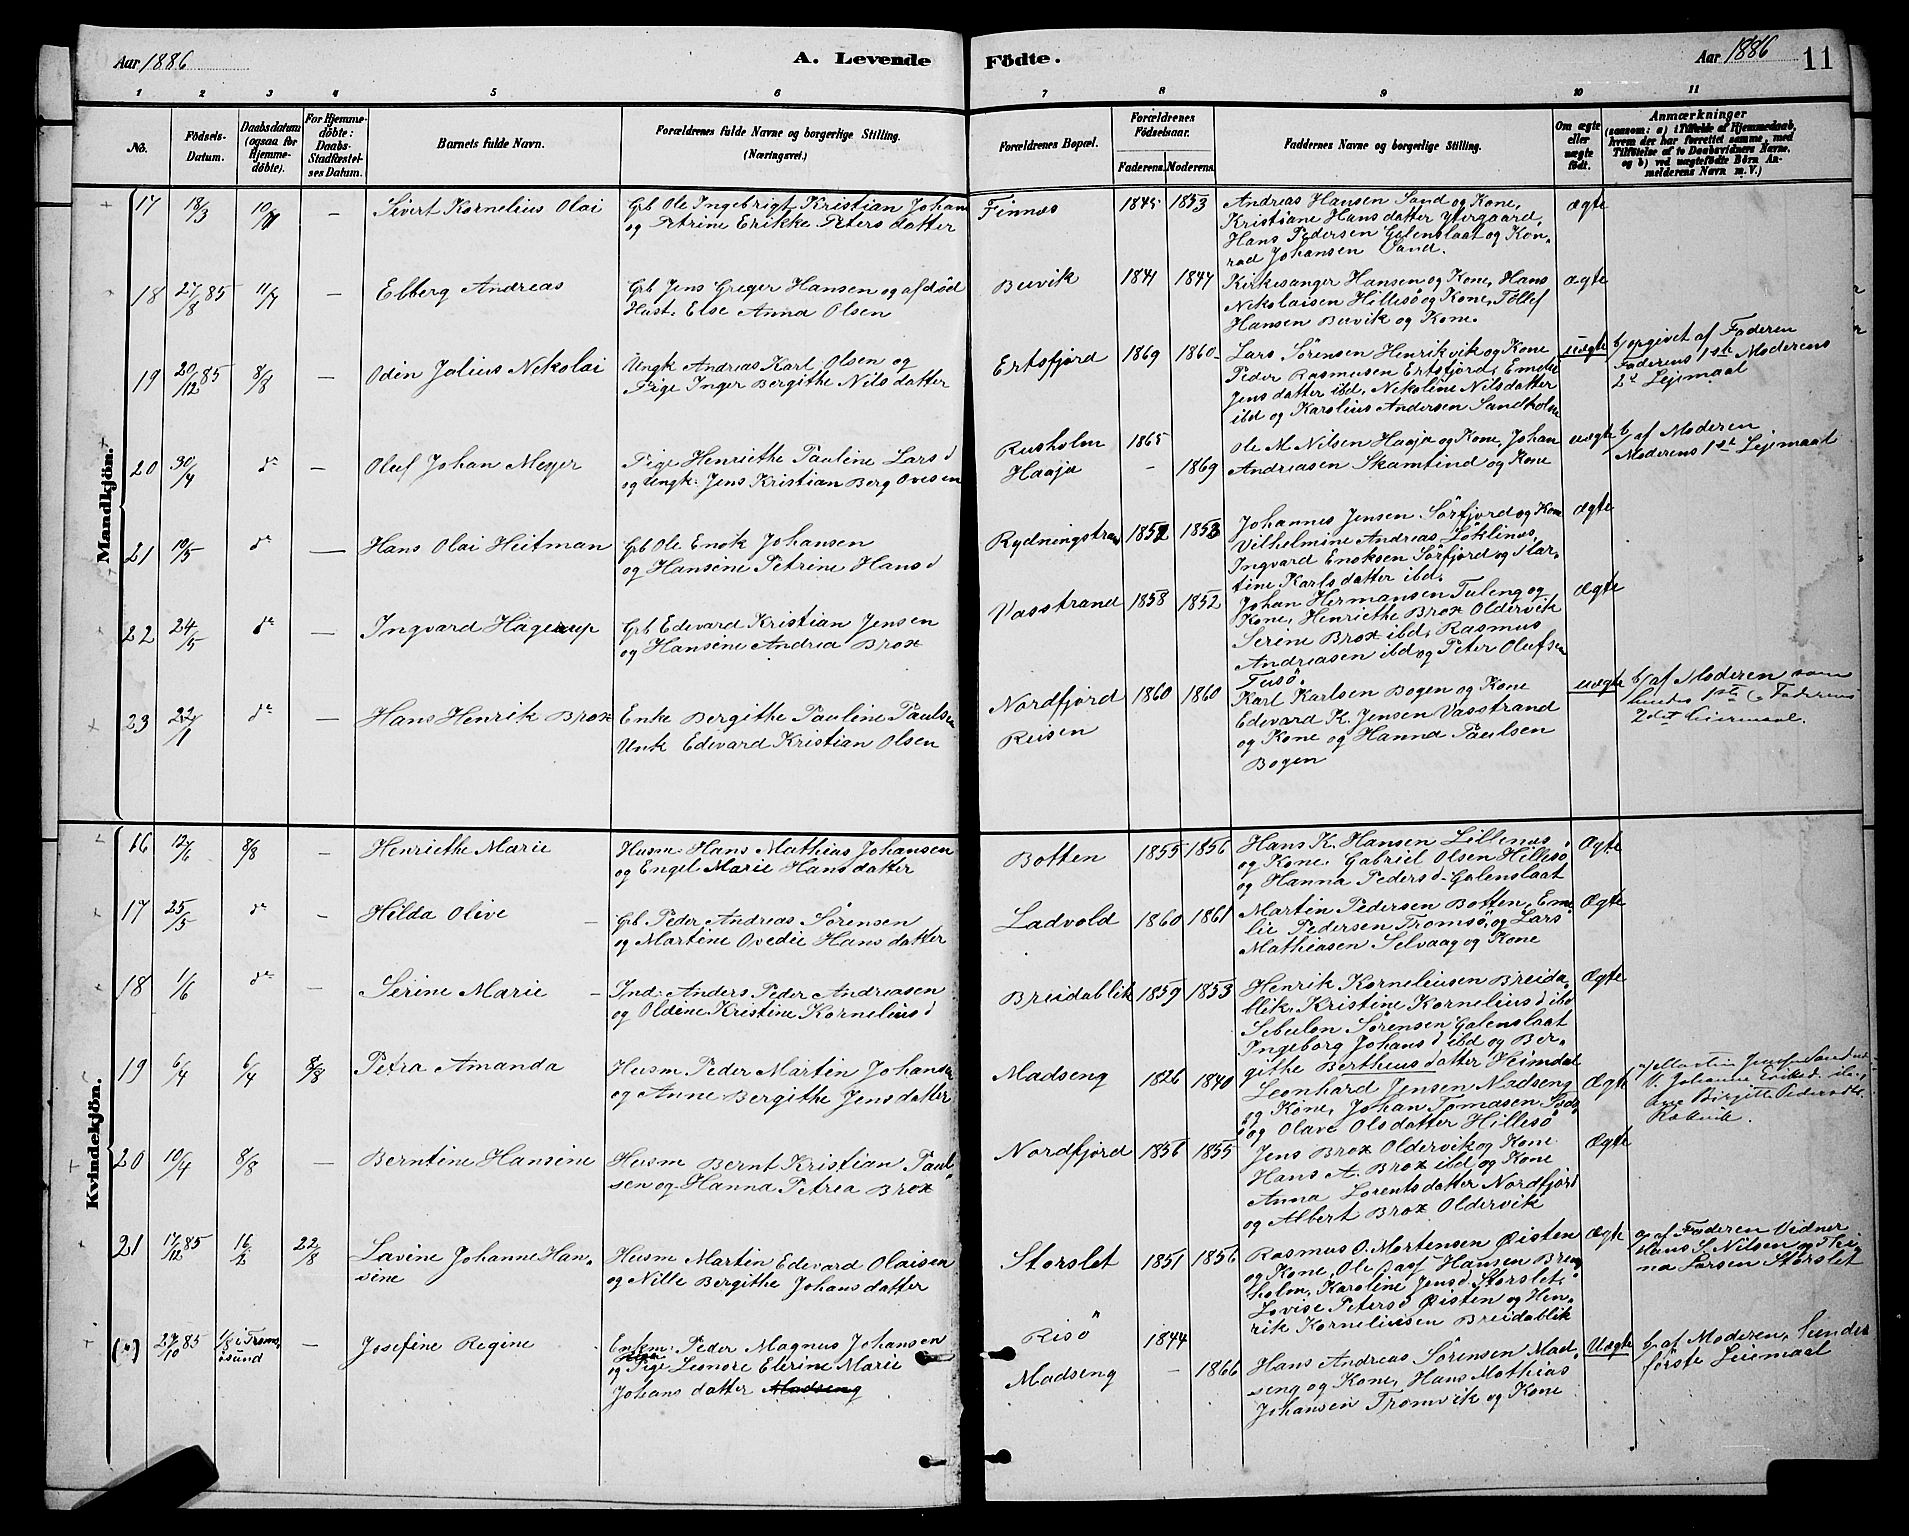 Aar 1886
A. Levende
Födte.
Aar 1886
11
1 2 3 4 5 6 7 8 9 10 11
No.
Födsels-
Datum.
Daabsdatum
(ogsaa for
Hjemme-
döbte).
For Hjemme-
döbte:
Daabs-
Stadfæstel-
ses Datum.
Barnets fulde Navn.
Forældrenes fulde Navne og borgerlige Stilling.
(Næringsvei.)
Forældrenes Bopæl.
Forældrenes
Födselsaar.
Faderens. Moderens.
Faddernes Navne og borgerlige Stilling.
Om ægte
eller
uægte
födt.
Anmærkninger
(saasom: a) i Tilfælde af Hjemmedaab,
hvem der har forrettet samme, med
Tilföielse af to Daabsvidners Navne,
og b) ved uægtefödte Börn An-
melderens Navn m. V.)
Mandkjön.
17 18/3 10/7 — Sivert Kornelius Olai
Grb Ole Ingebrigt Kristian Johan
og Petrine Erikke Petersdatter
Finnes 1845 1853
Andreas Hansen Sand og Kone,
Kristiane Hansdatter Ytergaard,
Hans Pedersen Galenslaat og Kon-
rad Johansen Sand.
ægte
18 27/8 85 11/7 — Elberg Andreas
Grb Jens Greger Hansen og afdöd
Hust. Else Anna Olsen
Buvik 1841 1847
Kirkesanger Hansen og Kone, Hans
Nikolaisen Hillesö og Kone, Tollef
Hansen Buvik og Kone.
ægte
19 20/12 85 8/8 — Odin Julius Nekolai
Ungk Andreas Karl Olsen og
Pige Inger Bergithe Nilsdatter
Ertsfjord 1869 1860
Lars Sörensen Henrikvik og Kone
Peder Rasmusen Ertsfjord, Emelie
Jensdatter ibd, Nekoline Nilsdatter
ibd og Karolius Andersen Sandholm
uægte
b/ opgivet af Faderen
Faderens 1ste Moderens
2t Lejemaal
20 30/4 d° — Oluf Johan Meyer
Pige Henriethe Pauline Lars d
og Ungk. Jens Kristian Berg Ovesen
Rusholm 1865
Haaja — 1869
Ole M. Nilsen Haaja og Kone, Johan
Andreasen Skamtind og Kone
uægte
b/ af Moderen
Moderens 1ste Lejemaal
21 10/5 d° — Hans Olai Heitman
Grb Ole Enok Johansen
og Hansine Petrine Hans d
Rydningstrand 1852 1853
Johannes Jensen Sörfjord og Kone
Vilhelmine Andreas. Löklines,
Ingvard Enoksen Sörfjord og Mar-
tine Karlsdatter ibd.
ægte
22 24/5 d° — Ingvard Hagerup
Grb Edevard Kristian Jensen
og Hansine Andrea Brox
Vasstrand 1858 1852
Johan Hermansen Tuleng og
Kone, Henriethe Brox Oldervik
Serine Brox ibd, Rasmus
Andreasen ibd og Peter Olufsen
Tusö.
ægte
23 22/1 d° — Hans Henrik Brox
Enke Bergithe Pauline Paulsen
Unk Edevard Kristian Olsen
Nordfjord 1860 1860
Reisen
Karl Karlsen Bogen og Kone
Edevard K. Jensen Vasstrand
og Kone og Hanna Paulsen
Bogen
uægte
b/ af Moderen som
hendes 1ste & Faderens
2det Leiermaal.
Kvindekjön.
16 12/6 8/8 — Henriethe Marie
Husm. Hans Mathias Johansen
og Engel Marie Hansdatter
Botten 1855 1856
Hans K. Hansen Lillenes
og Kone, Gabriel Olsen Hillesö
og Hanna Peders d. Galenslaat
Ægte
17 25/5 d° — Hilda Olive
Grb Peder Andreas Sörensen
og Martine Ovedie Hansdatter
Ladvold 1860 1861
Martin Pedersen Botten, Eme-
lie Pedersen Tromsö, og Lars
Mathiasen Selvaag og Kone
Ægte
18 1/6 d° — Serine Marie
Ind. Anders Peder Andreasen
og Oldene Kristine Kornelius d
Breidablik 1859 1853
Henrik Korneliusen Breida-
blik, Kristine Kornelius d ibd
Sebulon Sörensen Galenslaat
Ingeborg Johans d ibd og Ber-
githe Bertheusdatter Heimdal
Ægte
19 6/4 6/4 8/8 Petra Amanda
Husm Peder Martin Johansen
og Anne Bergithe Jensdatter
Madseng 1826 1840
Leonhard Jensen Madseng
og Kone, Johan Tomasen
og Olave Olsdatter Hillesö
Ægte
20 10/4 8/8 — Berntine Hansine
Husm Bernt Kristian Paul-
sen og Hanna Petrea Brox
Nordfjord 1856 1855
Jens Brox Oldervik og Kone
Hans A. Brox ibd og Kone
Anna Lorentsdatter Nordfjord
og Albert Brox Oldervik
Ægte
21 17/12 85 16/2 22/8 Lavine Johanne Han-
sine
Husm Martin Edevard Olaisen
og Nille Bergithe Johansdatter
Storslet 1851 1856
Rasmus O. Mortensen Øisten
og Kone, Ole Daß Hansen Breng-
holm, Karoline Jens d. Storslet,
Lovise Peters d Øisten og Hen-
rik Korneliusen Breidablik
Ægte
a/ af Faderen Vidner
Hans S. Nilsen og Tri-
na Larsen Storslet
(") 27/10 85 1/8 i Troms-
ösund — Josefine Regine
Enkem. Peder Magnus Johansen
og Pige Leonore Elerine Marie
Johansdatter Madseng
Risö 1844
Madseng — 1866
Hans Andreas Sörensen Mad-
seng og Kone, Hans Mathias
Johansen Tromvik og Kone
Uægte
b/ af Moderen, hendes
förste Leiemaal